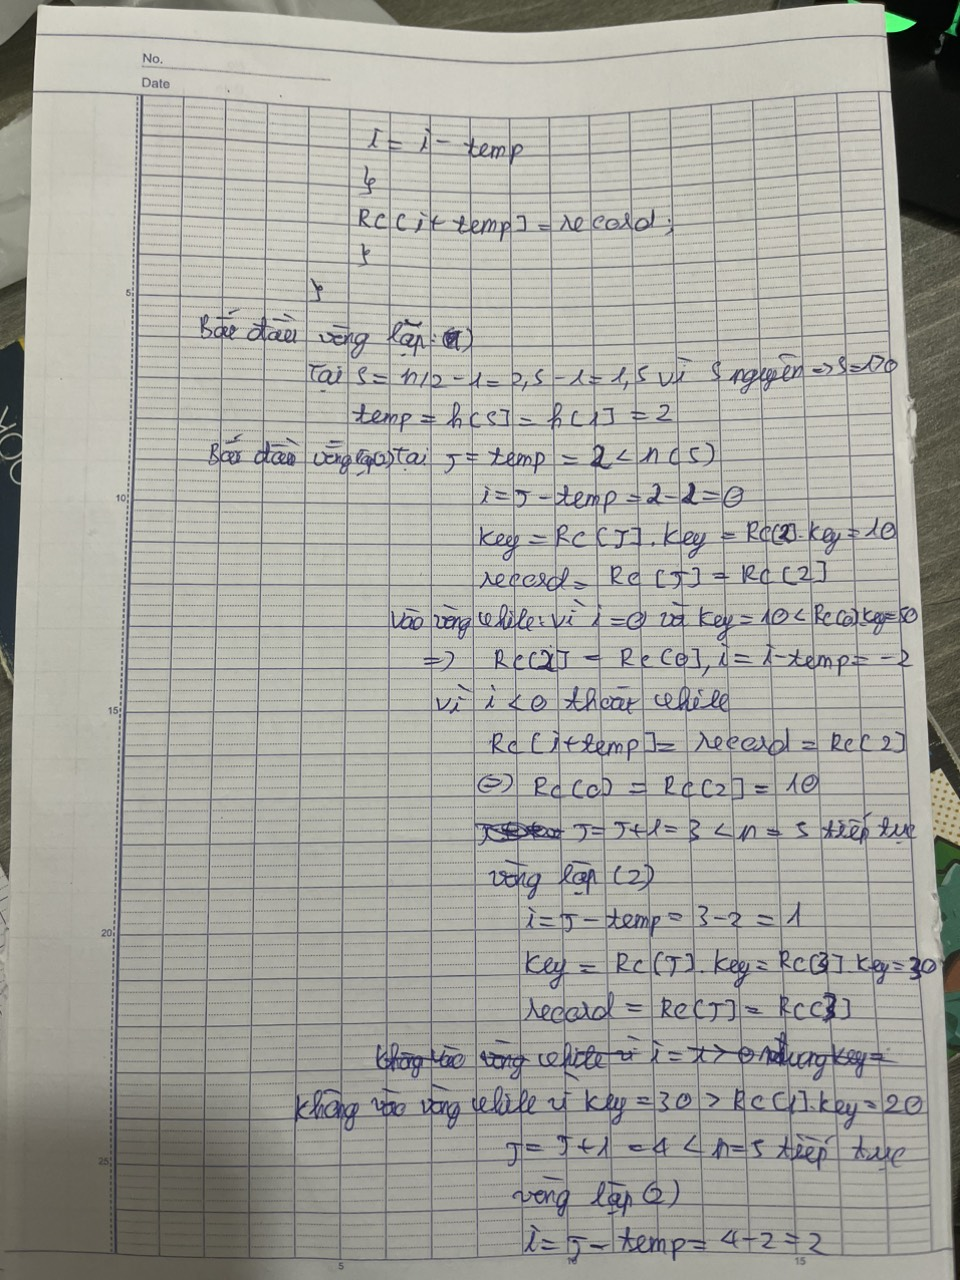 No.
Date
i = i - temp
}
Rc[i + temp] = record;
}
}
5
Bắt đầu vòng lặp (1)
Tại S = n/2 - 1 = 2,5 - 1 = 1,5 vì S nguyên => S = 1 > 0
temp = h[S] = h[1] = 2
Bắt đầu vòng lặp(2) tại J = temp = 2 < n(5)
10
i = J - temp = 2 - 2 = 0
Key = Rc[J].Key = Rc[2].Key = 10
record = Rc[J] = Rc[2]
Vào vòng while: vì i = 0 và Key = 10 < Rc[0].Key = 50
=> Rc[2] = Rc[0], i = i - temp = -2
15
vì i < 0 thoát while
Rc[i + temp] = record = Rc[2]
(=) Rc[0] = Rc[2] = 10
J = J + 1 = 3 < n = 5 tiếp tục
vòng lặp (2)
20
i = J - temp = 3 - 2 = 1
Key = Rc[J].Key = Rc[3].Key = 30
record = Rc[J] = Rc[3]
Không vào vòng while vì i = 1 > 0 nhưng Key =
Không vào vòng while vì Key = 30 > Rc[1].Key = 20
25
J = J + 1 = 4 < n = 5 tiếp tục
vòng lặp (2)
i = J - temp = 4 - 2 = 2
5 10 15